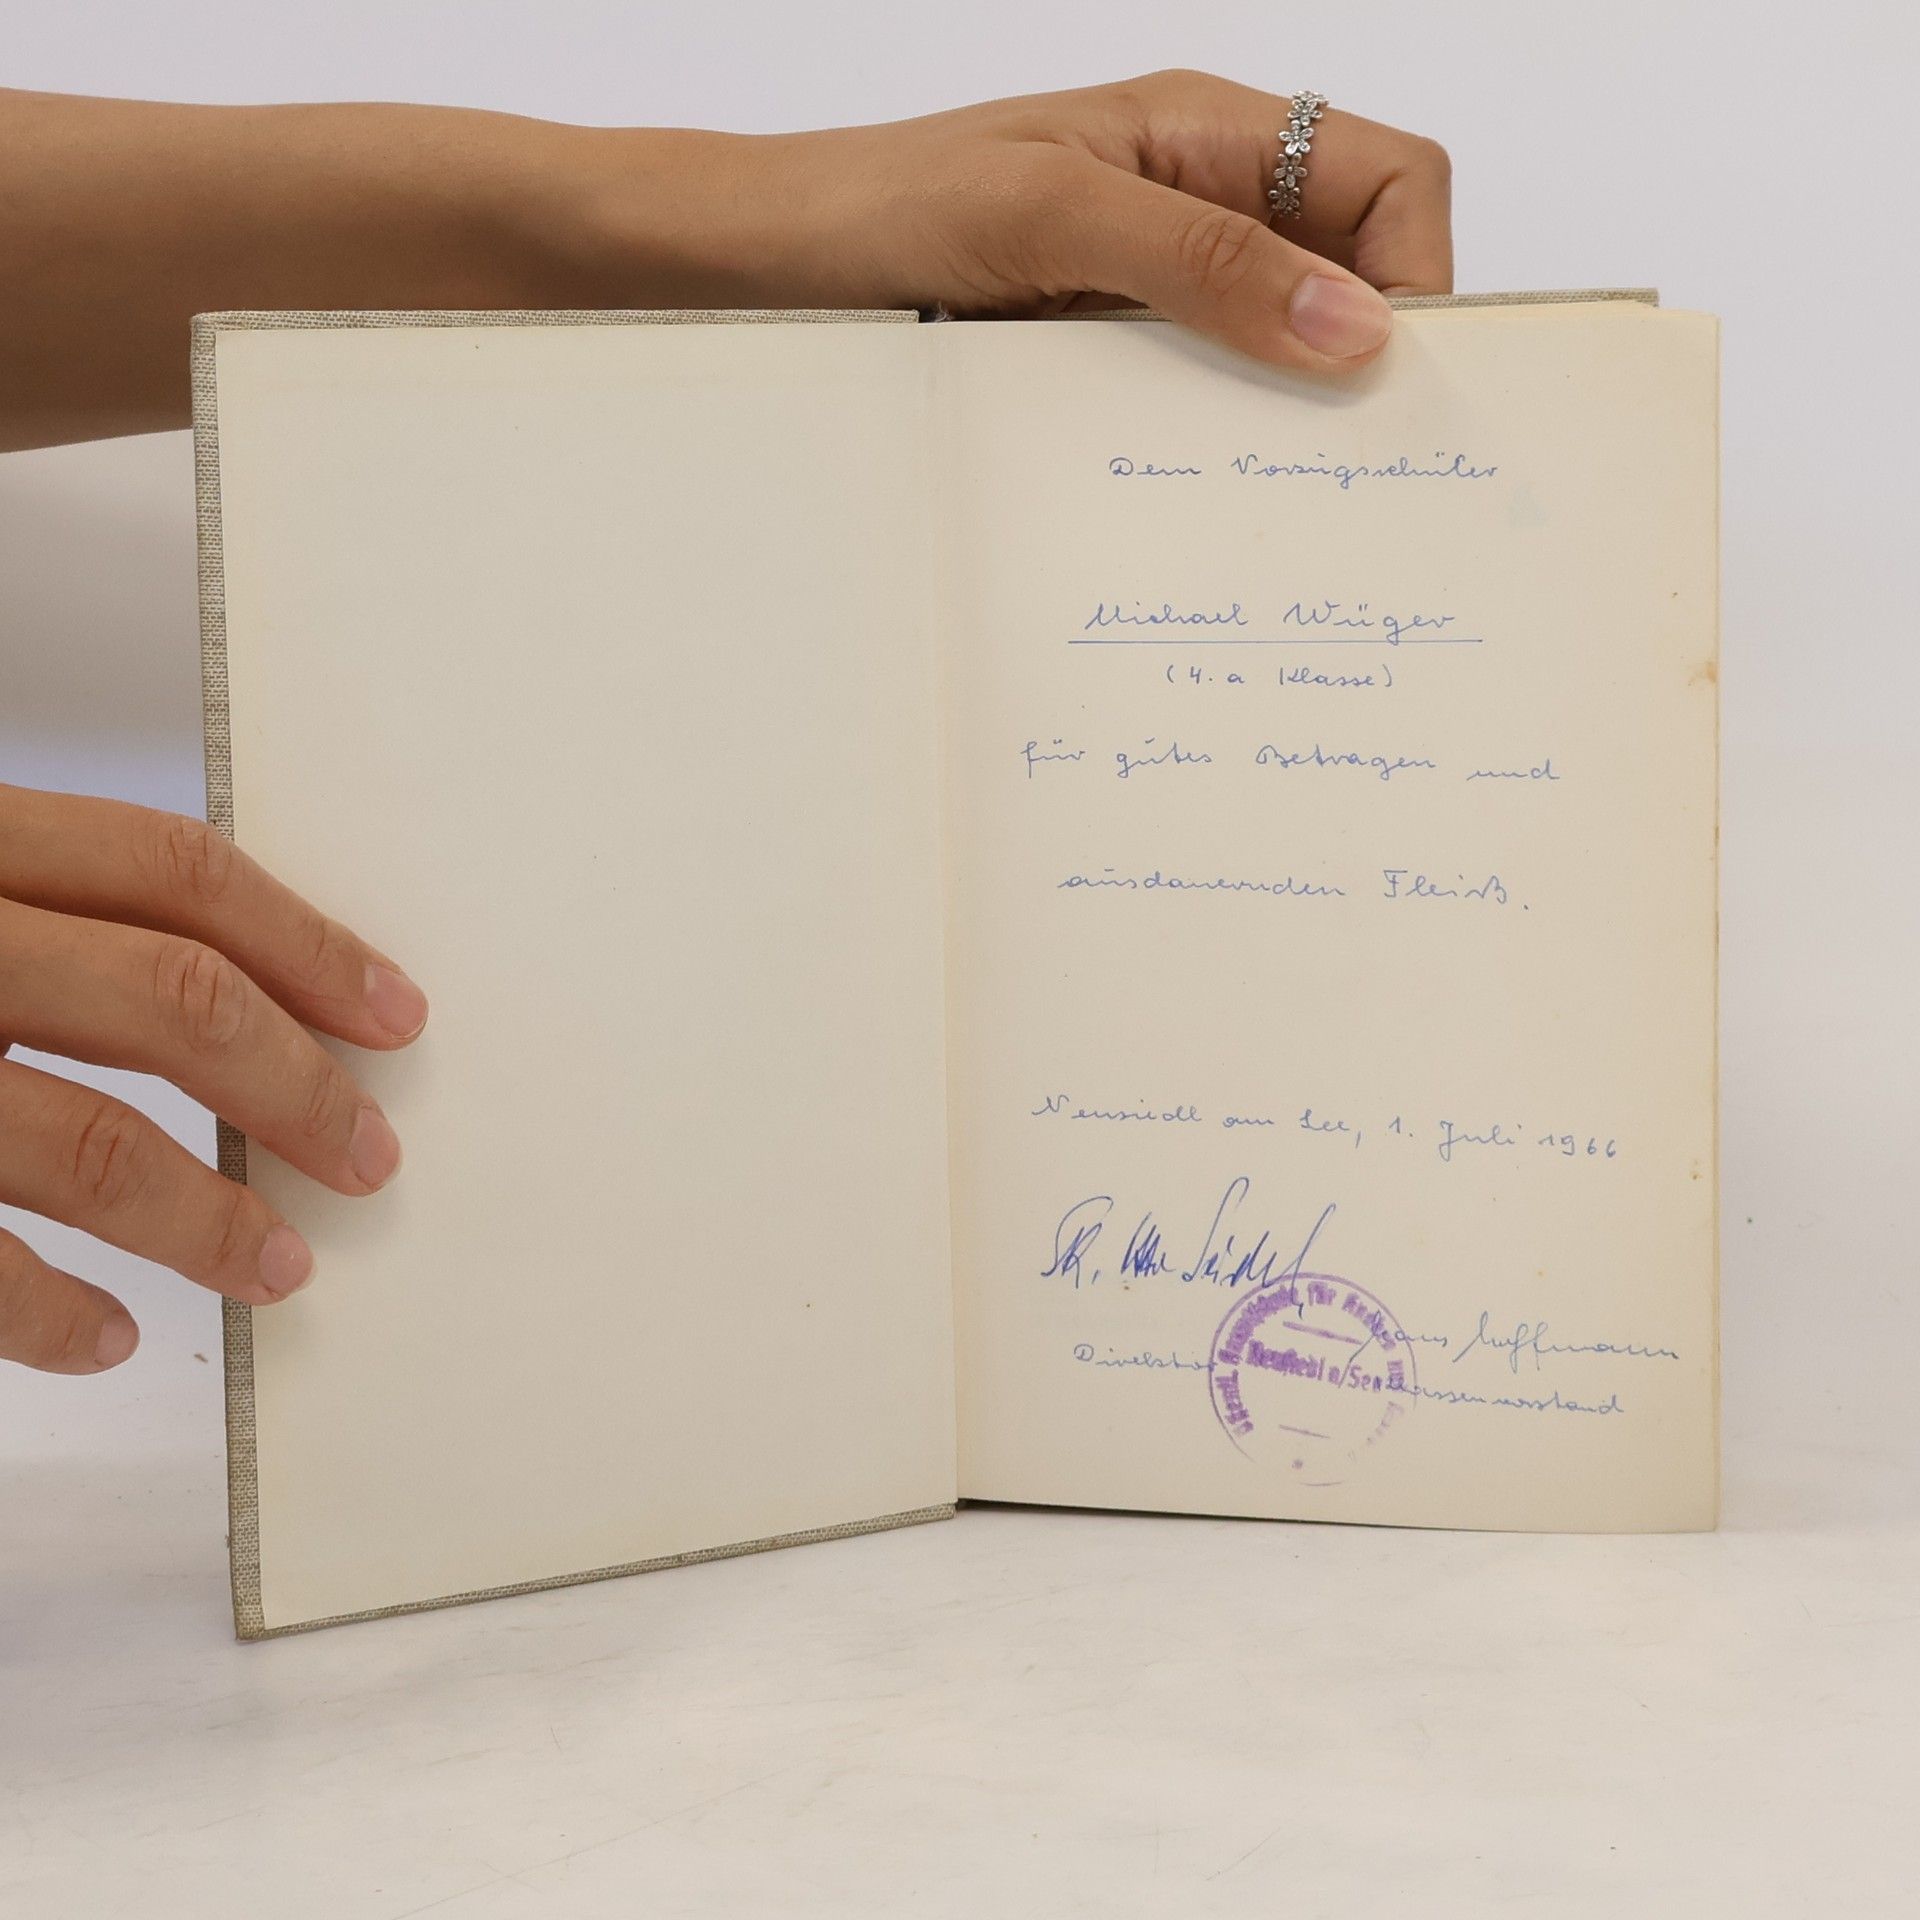 Dem Vorzugsschüler
Michael Wüger
(4. a Klasse)
für gutes Betragen und
ausdauernden Fleiß.
Neusiedl am See, 1. Juli 1966
Seidel
Hans Hoffmann
Direktor
Klassenvorstand
für
Neusiedl a/See